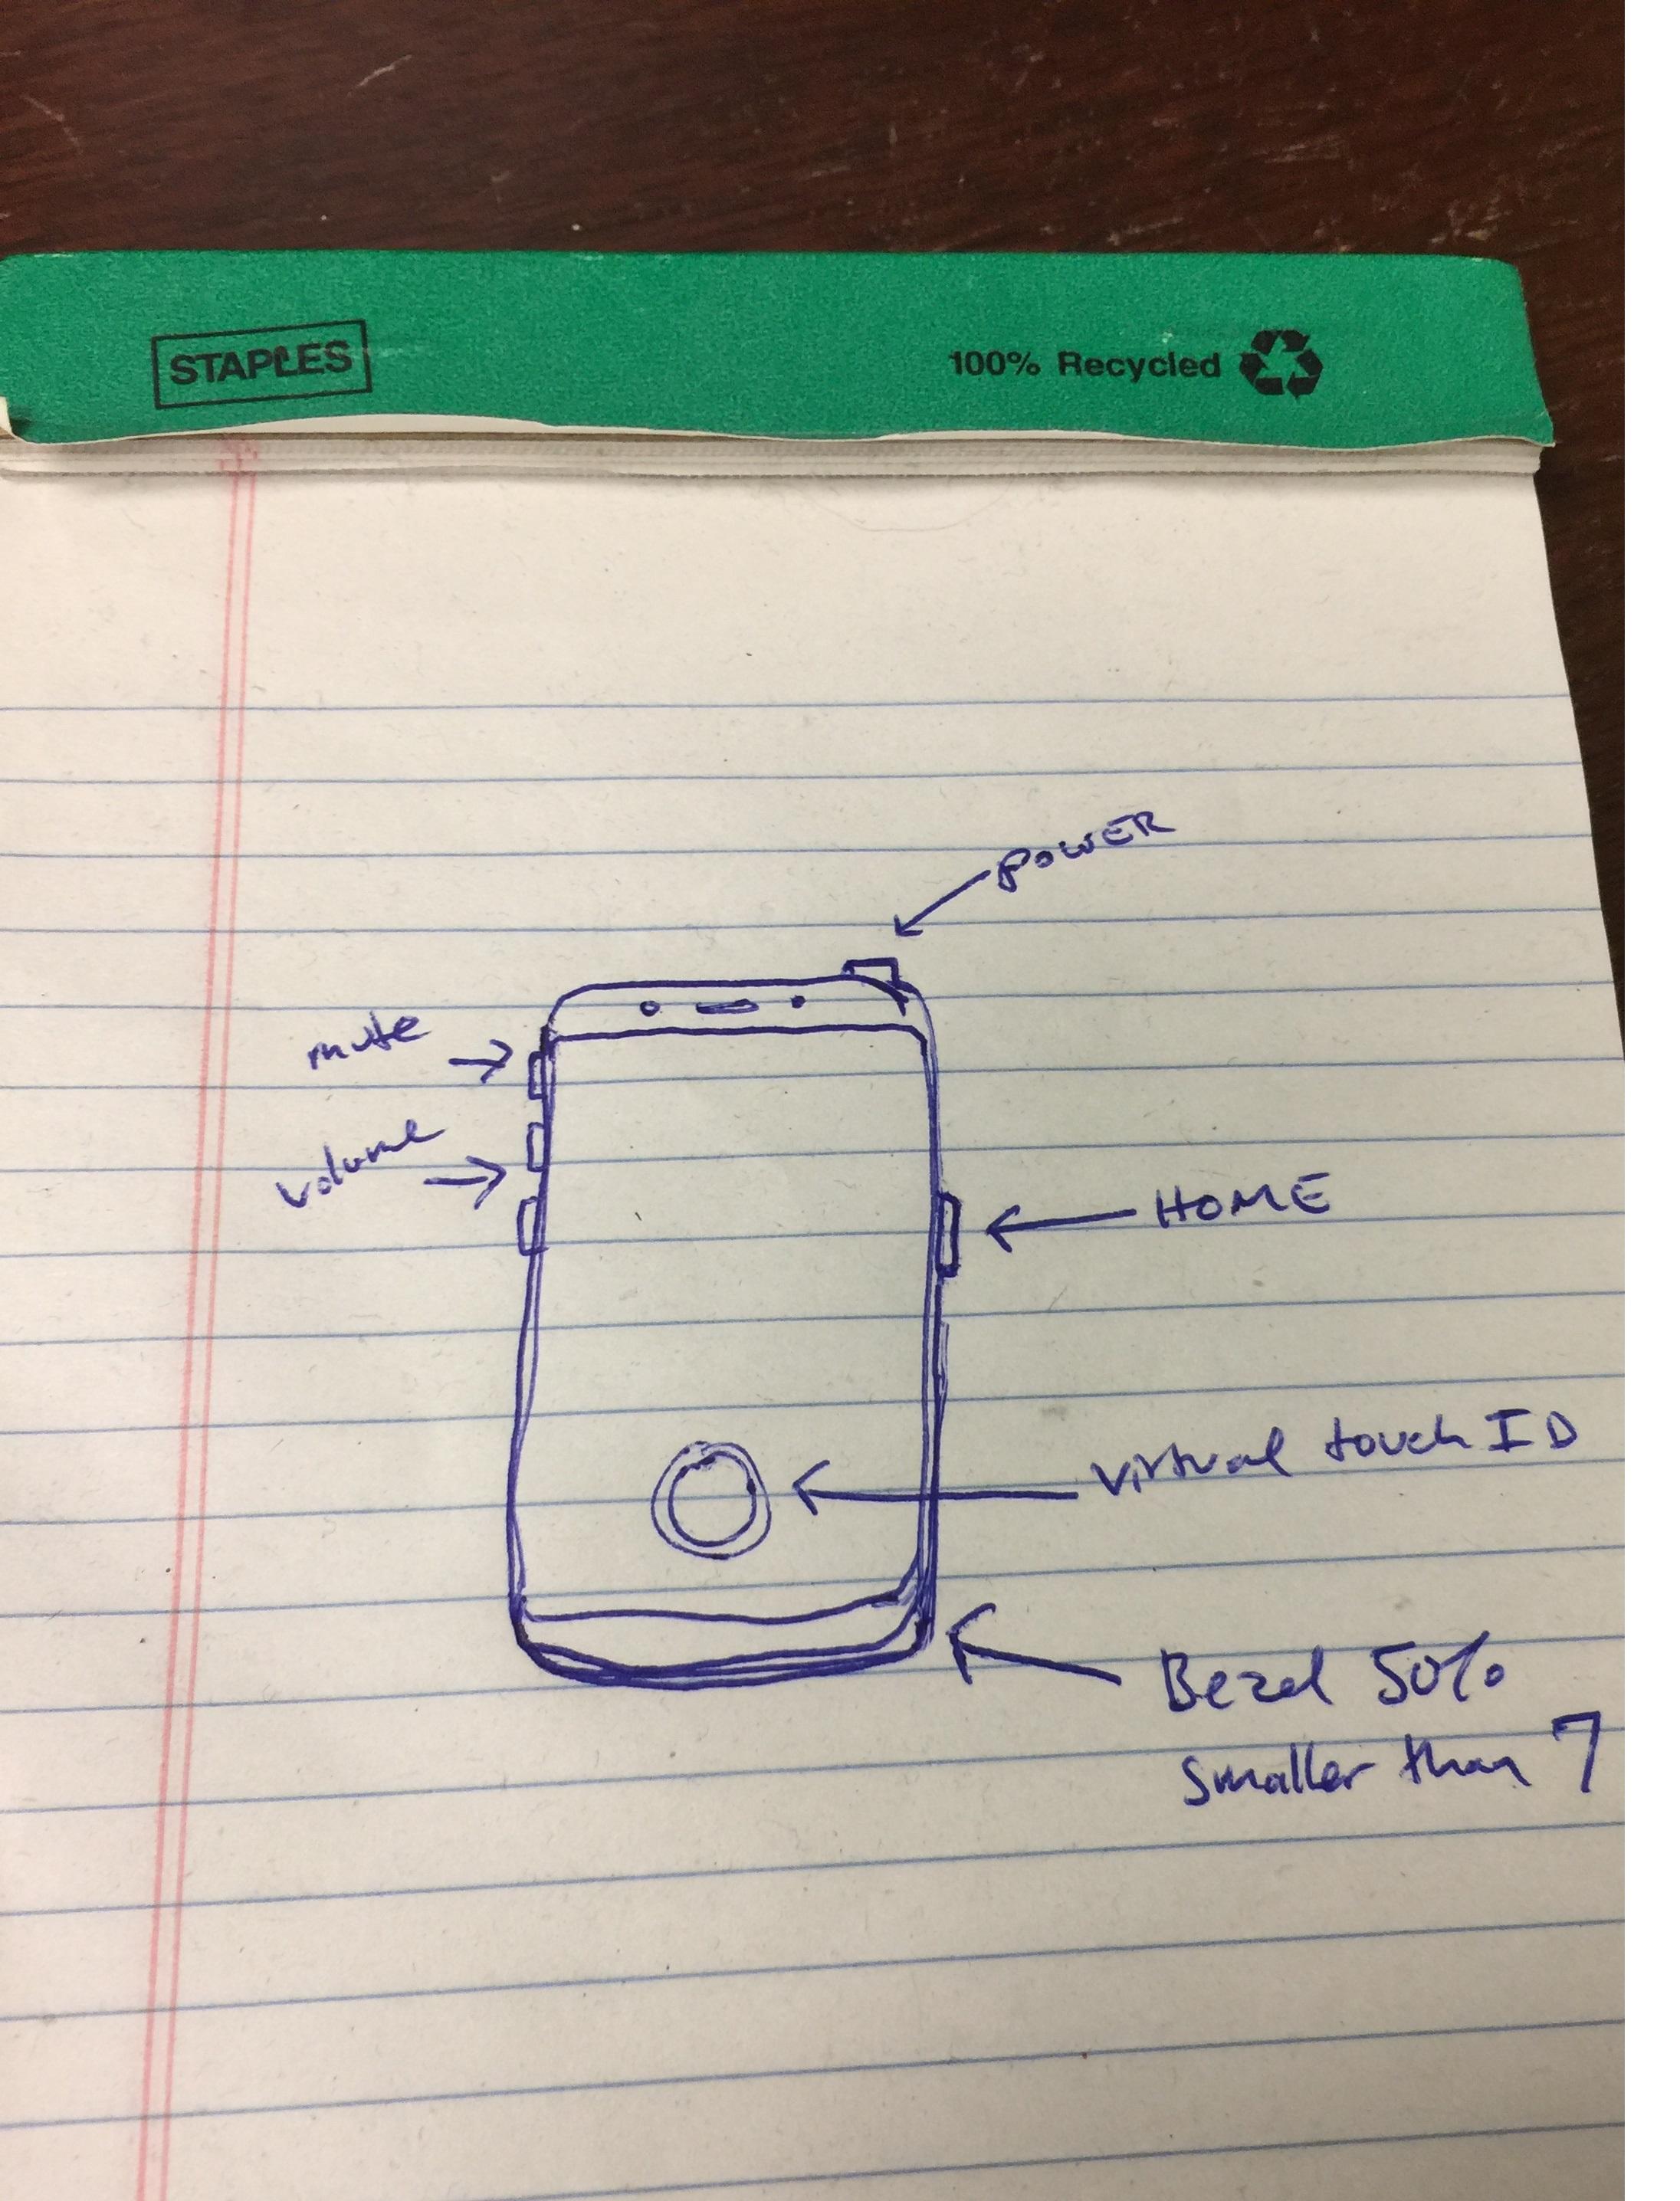 STAPLES
100% Recycled
POWER
mute
volume
HOME
virtual touch ID
Bezel 50%
smaller than 7